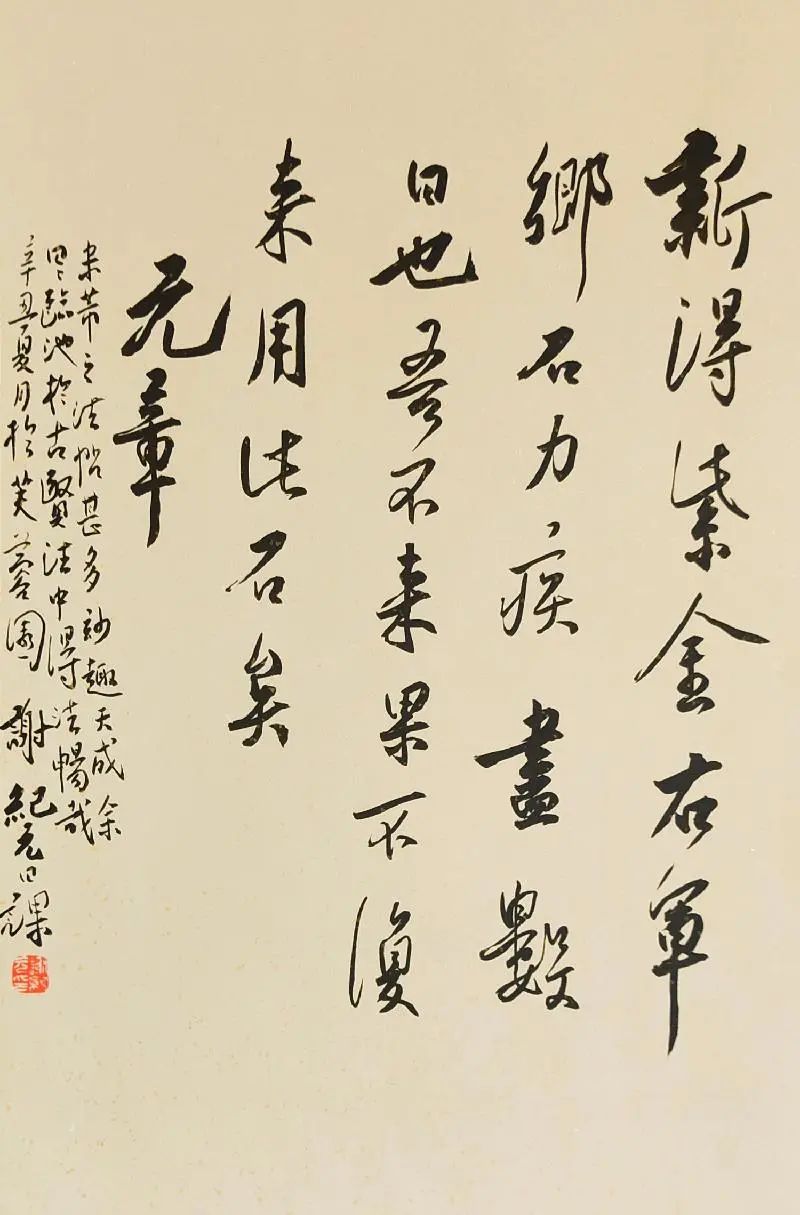 新得紫金右軍
鄉石力疾書數
日也吾不來果不復
來用此石矣
元章
米芾之法帖甚多妙趣天成余
日日臨池於古賢法中得法暢哉
辛丑夏月於芙蓉園謝紀元日課